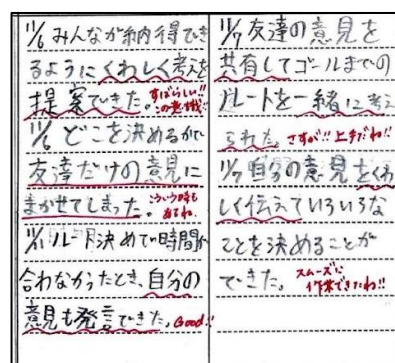 11/6 みんなが納得でき
るようにくわしく考えを
提案できた。すばらしい!!
この意識!!
11/6 どこを決めるかで
友達だけの意見に
まかせてしまった。こういう時も
あるね。
11/ ルート決めで時間が
合わなかったとき、自分の
意見も発言できた。Good!!
11/7 友達の意見を
共有してゴールまでの
ルートを一緒に考え
られた。さすが!! 上手だわ!!
11/7 自分の意見をくわ
しく伝えていろいろな
ことを決めることが
できた。スムーズに
作業できたわ!!